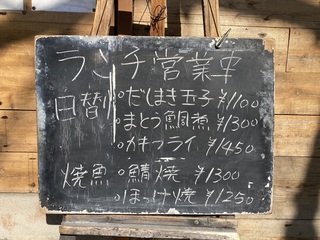 ランチ営業中
日替り。だしまき玉子 ¥1100
。まとう鯛煮 ¥1300
。カキフライ ¥1450
焼魚。鯖焼 ¥1300
。ほっけ焼 ¥1250